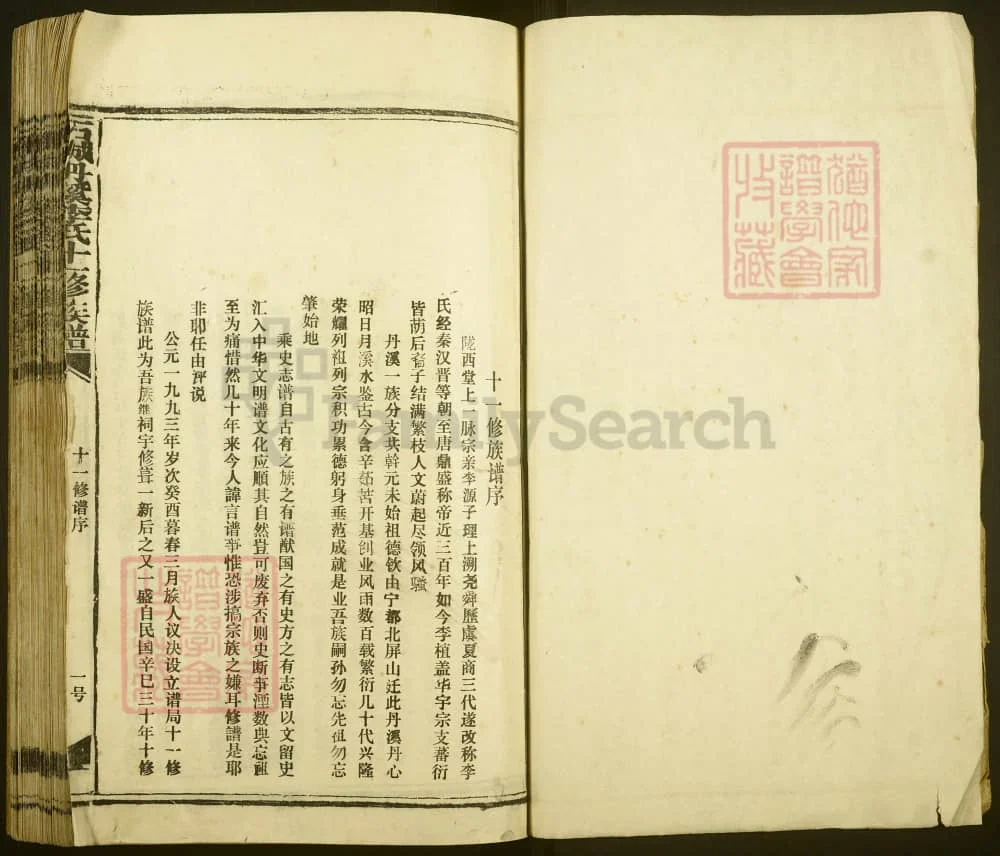 十一修族谱序
陇西堂上一脉宗亲李源子理上溯尧舜歷虞夏商三代遂改称李
氏经秦汉晋等朝至唐鼎盛称帝近三百年如今李植盖华宇宗支蕃衍
皆荫后裔子结满繁枝人文蔚起尽领风骚
丹溪一族分支共幹元末始祖德钦由宁都北屏山迁此丹溪丹心
昭日月溪水鉴古今含辛茹苦开基创业风雨数百载繁衍几十代兴隆
荣耀列祖列宗积功累德躬身垂范成就是业吾族嗣孙勿忘先祖勿忘
肇始地
乘史志谱自古有之族之有谱猷国之有史方之有志皆以文留史
汇入中华文明谱文化应顺其自然豈可废弃否则史断事湮数典忘祖
至为痛惜然几十年来今人諱言谱事惟恐涉搞宗族之嫌耳修譜是耶
非耶任由评说
公元一九九三年岁次癸酉暮春三月族人议决设立谱局十一修
族谱此为吾族继祠宇修葺一新后之又一盛自民国辛巳三十年十修
石城丹溪李氏十一修族谱
十一修谱序
一号
譜學會
收藏
FamilySearch